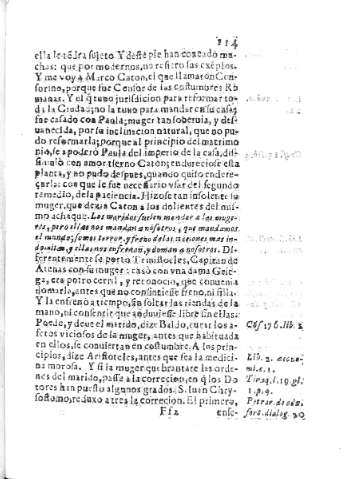 114
ella le tédra sujeto Y deste pie han cogeado muchas: que por modernos, no refiero sus exéplos.
Y me voy a Marco Caton, el que llamaron Censorino, porque fue Censor de las costumbres Romanas. Y el q̃ tuvo jurisdicion para reformar toda la Ciudad, no la tuvo para mandar en su casa;
fue casado con Paula; muger tan sobervia, y desvanecida, por su inclinacion natural, que no pudo reformarla; porque al principio del matrimonio, se apoderó Paula del imperio de la casa,
con amor tierno Caton;
planta, y no pudo despues, quando quiso endereçarla: con que le fue necessario vsar del segundo
remedio, de la paciencia. Hizose tan insolente la
muger, que dezia Caton a los dolientes del mismo achaque. Los maridos suelen mandar a las mugeres, pero ellas nos mandan a nosotros, que mandamos
el mundo; somos terror, y freno de las naciones mas
y ellas nos enfrenan, y doman a nosotros. Diferentemente se portó Temistocles, Capitan de
Atenas con su muger: casó con vna dama Griega, era potro cerril, y reconocio, que convenia
domarlo, antes que no consintiesse freno, ni silla.
Y la enfrenó a tiempo, sin soltar las riendas de la
mano, ni consentir que anduviesse libre sin ellas.
Puede, y deve el marido, dize Baldo, curar los afectos viciosos de la muger, antes que habituada
en ellos, se conviertan en costumbre. A los principios, dize Aristoteles, antes que sea la medicina morosa. Y si la muger quebrantare las ordenes del marido, passe a la correcion, en q̃ los Dotores han puesto algunos grados; S. Iuan Chrysostomo, reduxo a tres la correcion. El primero,
Ff2 ense-
Cõs 176. lib. 2
Lib. 2.
mi. c. 1.
Tiraq. l. 19. gl.
1. p. 9.
Petrar. de
dialog. 20